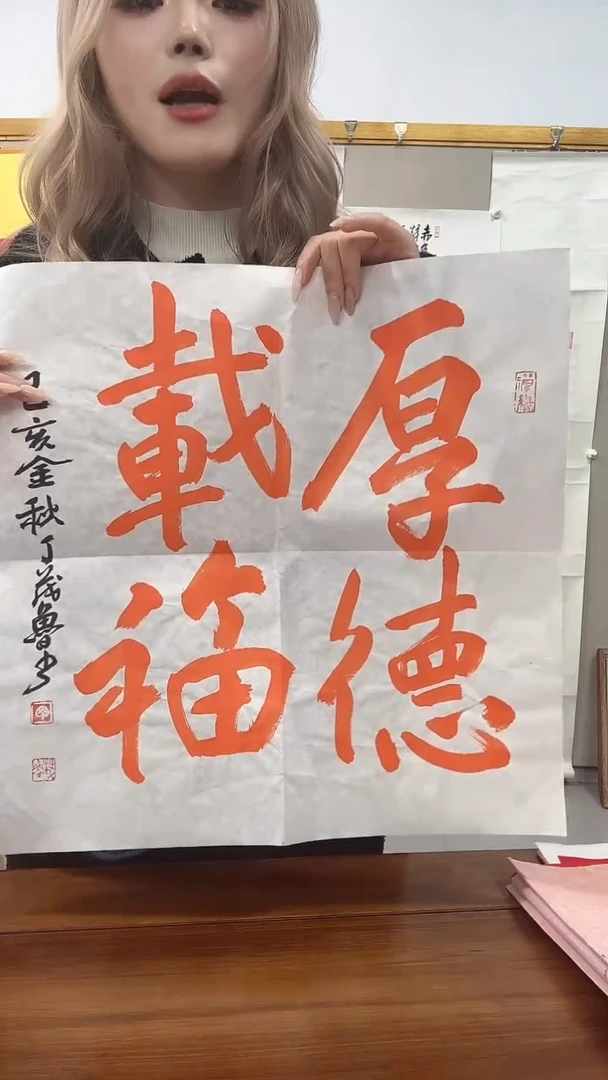 厚德
載福
己亥金秋丁茂魯书